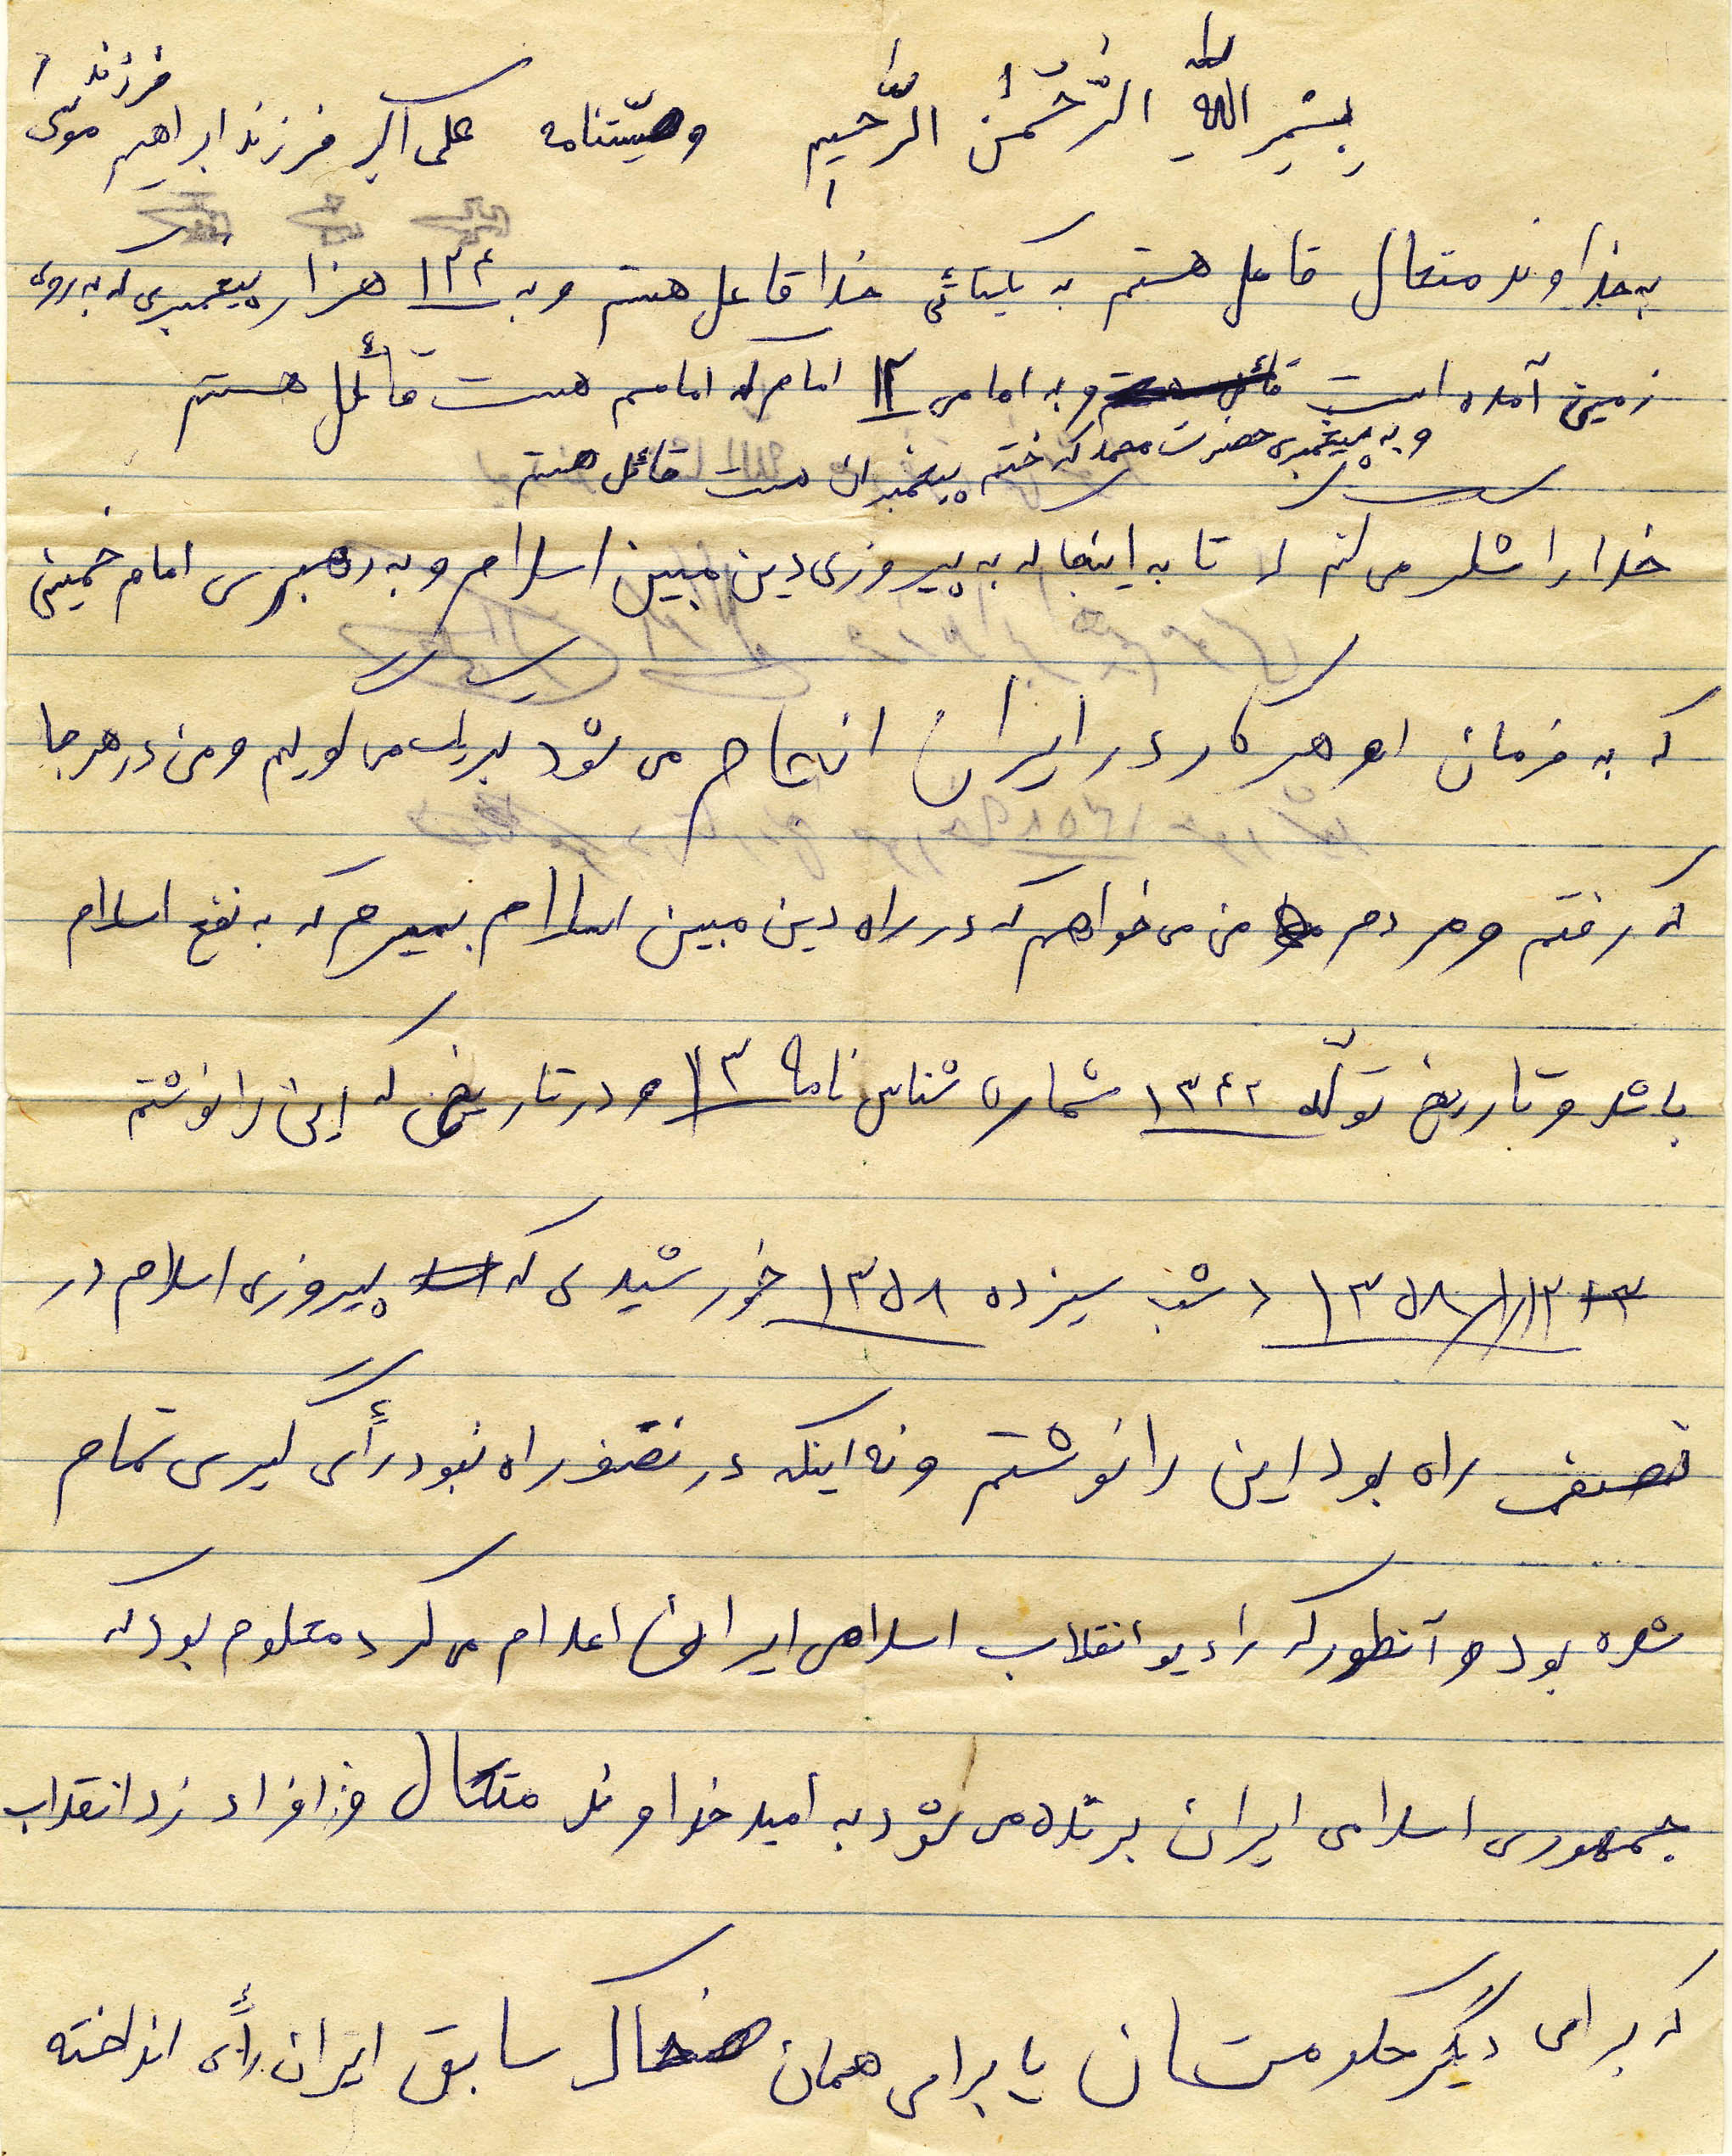 بِسْمِ اللهِ الرَّحْمنِ الرَّحیمِ وصیّتنامه علی اکبر فرزند ابراهیم فرزند موسی
به خداوند متعال قاعل هستم به یکتائی خدا قاعل هستم و به ۱۲۴ هزار پیغمبری که به روی
زمین آمده است و به امامی ۱۲ امام که امامم هست قائل هستم
و به پیغمبری حضرت محمد که ختم پیغمبران هست قائل هستم
خدا را شکر می کنم که تا به اینجا که به پیروزی دین مبین اسلام و به رهبری امام خمینی
که به فرمان او هر کار در ایران انجام می شود لبریک می گویم و من در هر جا
که رفتم و مردم من می خواهم که در راه دین مبین اسلام بمیرم که به نفع اسلام
باشد و تاریخ تولّد ۱۳۴۲ شماره شناس نامه ۱۳ و در تاریخی که این را نوشتم
۱۳۵۸/۱/۱۳ د شب سیزده ۱۳۵۸ خورشیدی که پیروزی اسلام در
نصفی راه بود این را نوشتم و نه اینکه در نصف راه نبود رأی گیری تمام
شده بود و آنطور که رادیو انقلاب اسلامی ایران اعلام می کرد معلوم بود که
جمهوری اسلامی ایران برنده می شود به امید خداوند متعال و افراد زد انقلاب
که برای دیگر حکومتان یا برای همان سابق ایران رأی انداخته